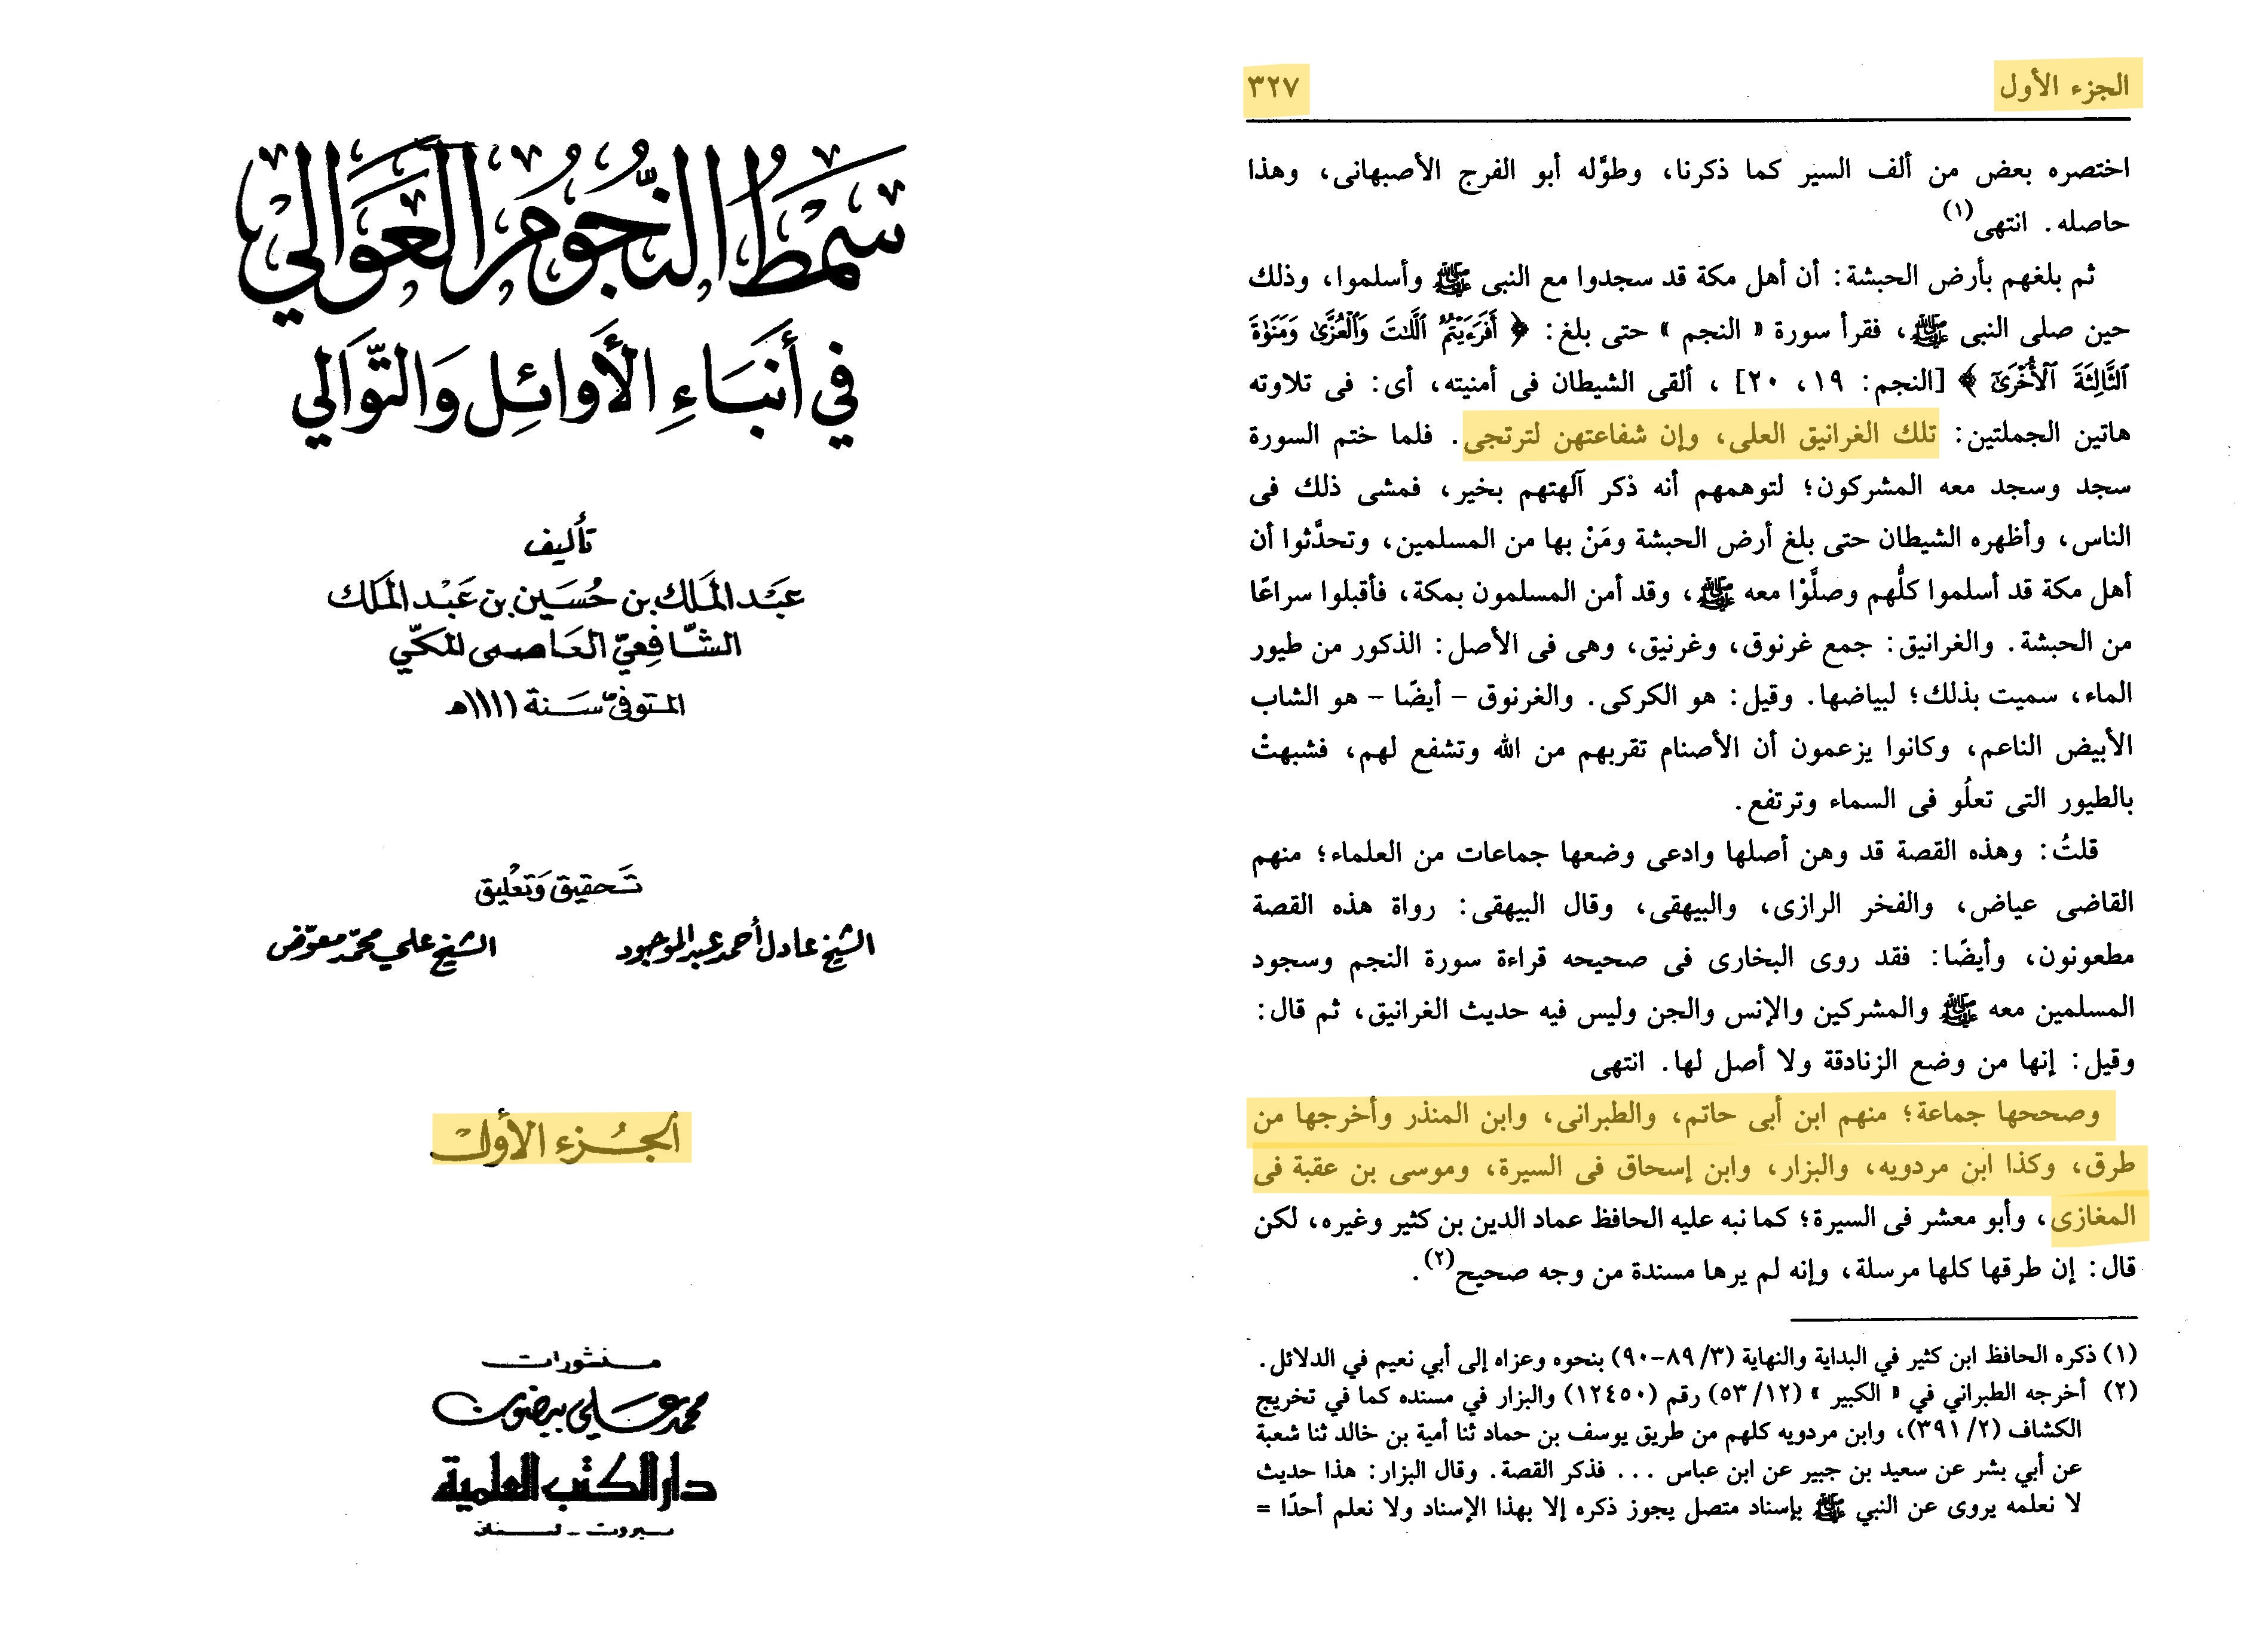 سمط النجوم العوالي
في أنباء الأوائل والتوالي
تأليف
عبد الملك بن حسين بن عبد الملك
الشافعي العاصمي المكي
المتوفى سنة ١١١١هـ
تحقيق وتعليق
الشيخ عادل أحمد عبد الموجود الشيخ علي محمد معوض
الجزء الأول
منشورات
محمد علي بيضون
دار الكتب العلمية
بيروت - لبنان
الجزء الأول ٣٢٧
اختصره بعض من ألف السير كما ذكرنا، وطوَّله أبو الفرج الأصبهانى، وهذا
حاصله. انتهى(١)
ثم بلغهم بأرض الحبشة: أن أهل مكة قد سجدوا مع النبى ﷺ وأسلموا، وذلك
حين صلى النبى ﷺ، فقرأ سورة « النجم » حتى بلغ: ﴿ أَفَرَءَيْتُمُ ٱللَّٰتَ وَٱلْعُزَّىٰ وَمَنَوٰةَ
ٱلثَّالِثَةَ ٱلْأُخْرَىٰٓ ﴾ [النجم: ١٩، ٢٠] ، ألقى الشيطان فى أمنيته، أى: فى تلاوته
هاتين الجملتين: تلك الغرانيق العلى، وإن شفاعتهن لترتجى. فلما ختم السورة
سجد وسجد معه المشركون؛ لتوهمهم أنه ذكر آلهتهم بخير، فمشى ذلك فى
الناس، وأظهره الشيطان حتى بلغ أرض الحبشة ومَنْ بها من المسلمين، وتحدَّثوا أن
أهل مكة قد أسلموا كلُّهم وصلَّوْا معه ﷺ، وقد أمن المسلمون بمكة، فأقبلوا سراعًا
من الحبشة. والغرانيق: جمع غرنوق، وغرنيق، وهى فى الأصل: الذكور من طيور
الماء، سميت بذلك؛ لبياضها. وقيل: هو الكركى. والغرنوق – أيضًا – هو الشاب
الأبيض الناعم، وكانوا يزعمون أن الأصنام تقربهم من الله وتشفع لهم، فشبهتْ
بالطيور التى تعلُو فى السماء وترتفع.
قلتُ: وهذه القصة قد وهن أصلها وادعى وضعها جماعات من العلماء؛ منهم
القاضى عياض، والفخر الرازى، والبيهقى، وقال البيهقى: رواة هذه القصة
مطعونون، وأيضًا: فقد روى البخارى فى صحيحه قراءة سورة النجم وسجود
المسلمين معه ﷺ والمشركين والإنس والجن وليس فيه حديث الغرانيق، ثم قال:
وقيل: إنها من وضع الزنادقة ولا أصل لها. انتهى
وصححها جماعة؛ منهم ابن أبى حاتم، والطبرانى، وابن المنذر وأخرجها من
طرق، وكذا ابن مردويه، والبزار، وابن إسحاق فى السيرة، وموسى بن عقبة فى
المغازى، وأبو معشر فى السيرة؛ كما نبه عليه الحافظ عماد الدين بن كثير وغيره، لكن
قال: إن طرقها كلها مرسلة، وإنه لم يرها مسندة من وجه صحيح(٢).
(١) ذكره الحافظ ابن كثير في البداية والنهاية (٣/ ٨٩-٩٠) بنحوه وعزاه إلى أبي نعيم في الدلائل.
(٢) أخرجه الطبراني في « الكبير » (١٢/ ٥٣) رقم (١٢٤٥٠) والبزار في مسنده كما في تخريج
الكشاف (٢/ ٣٩١)، وابن مردويه كلهم من طريق يوسف بن حماد ثنا أمية بن خالد ثنا شعبة
عن أبي بشر عن سعيد بن جبير عن ابن عباس ... فذكر القصة. وقال البزار: هذا حديث
لا نعلمه يروى عن النبي ﷺ بإسناد متصل يجوز ذكره إلا بهذا الإسناد ولا نعلم أحدًا =